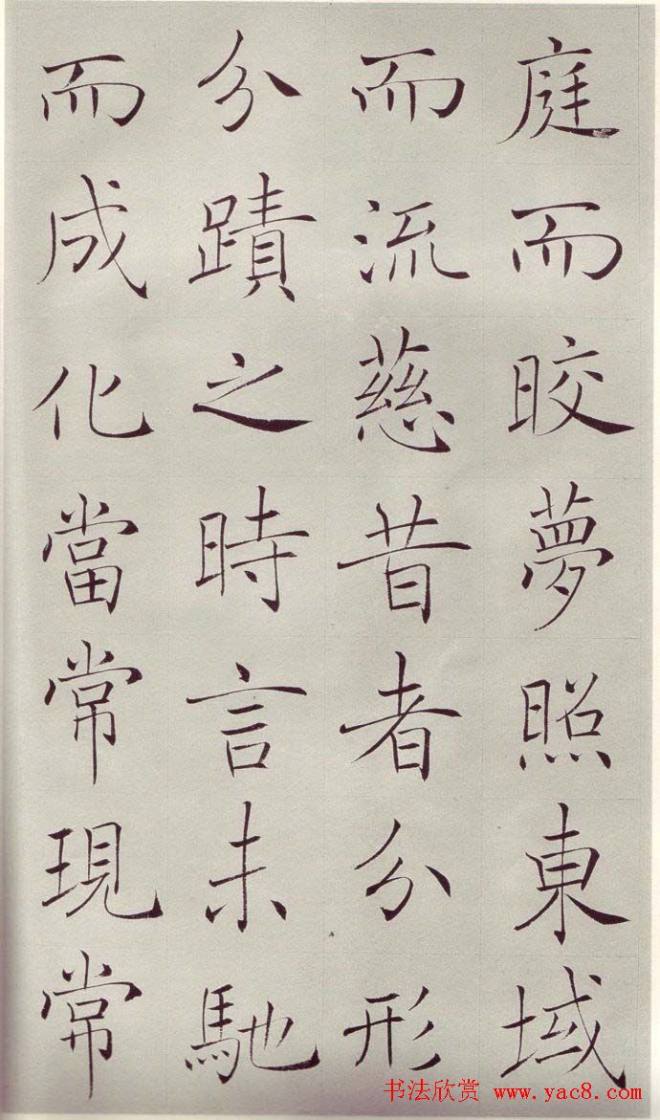 庭而皎夢照東域
而流慈昔者分形
分蹟之時言未馳
而成化當常現常
书法欣赏 www.yac8.com